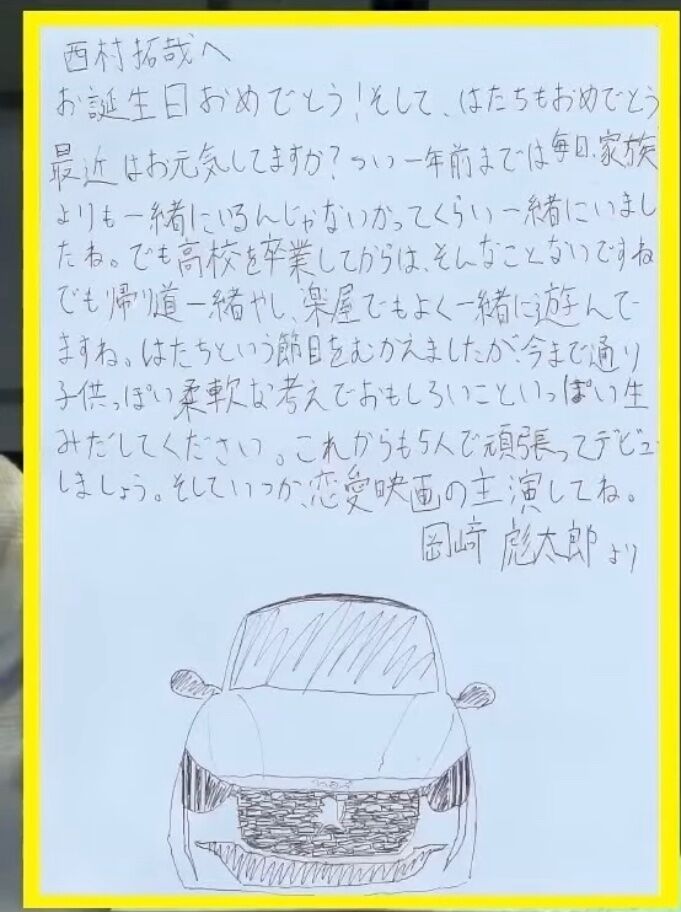 西村拓哉へ
お誕生日おめでとう!そして、はたちもおめでとう
最近はお元気してますか?つい一年前までは毎日、家族
よりも一緒にいるんじゃないかってくらい一緒にいまし
たね。でも高校を卒業してからは、そんなことないですね
でも帰り道一緒やし、楽屋でもよく一緒に遊んで
ますね。はたちという節目をむかえましたが、今まで通り
子供っぽい柔軟な考えでおもしろいこといっぱい生
みだしてください。これからも5人で頑張ってデビュー
しましょう。そしていつか、恋愛映画の主演してね。
岡﨑 彪太郎 より